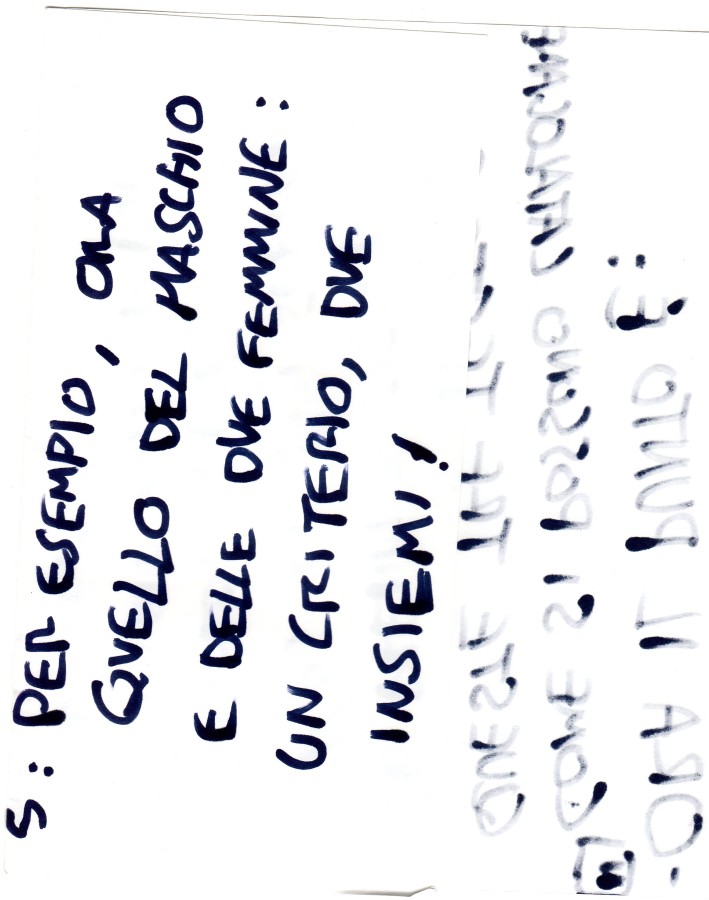 S: PER ESEMPIO, ORA
QUELLO DEL MASCHIO
E DELLE DUE FEMMINE:
UN CRITERIO, DUE
INSIEMI!
- ORA IL PUNTO È:
COME SI POSSONO
QUESTE TRE